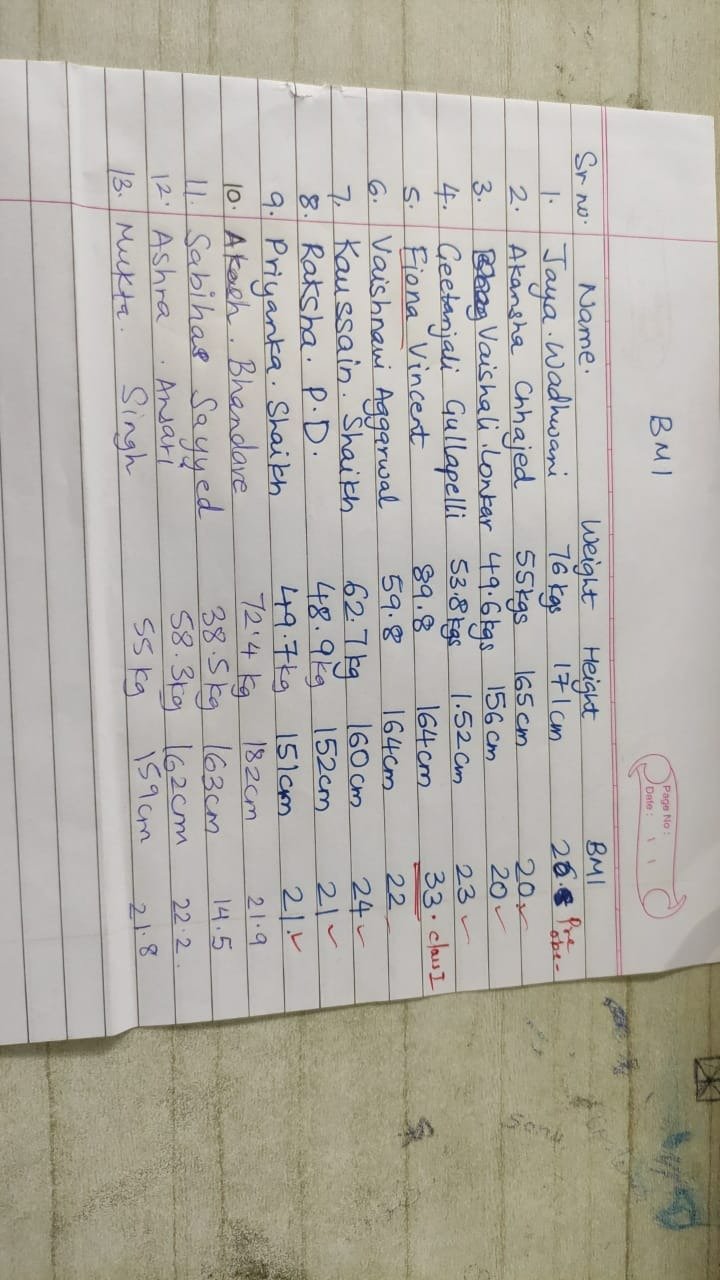 BMI
Page No:
Date:
Sr no. Name. Weight Height BMI
1. Jaya. Wadhwani 76 kgs 171 cm 26.8 Pre obe-
2. Akansha Chhajed 55kgs 165 cm 20
3. Vaishali. Lonkar 49.6 kgs 156 cm 20
4. Geetanjali Gullapelli 53.8 kgs 1.52 cm 23
5. Fiona Vincent 89.8 164 cm 33. class I
6. Vaishnavi Aggarwal 59.8 164 cm 22
7. Kaussain. Shaikh 62.7 kg 160 cm 24
8. Raksha. P.D. 48.9 kg 152 cm 21
9. Priyanka. Shaikh 49.7 kg 151 cm 21.
10. Akash. Bhandare 72.4 kg 182cm 21.9
11. Sabihas Sayyed 38.5 kg 163cm 14.5
12. Ashra. Ansari 58.3kg 162cm 22.2.
13. Mukta. Singh 55 kg 159cm 21.8